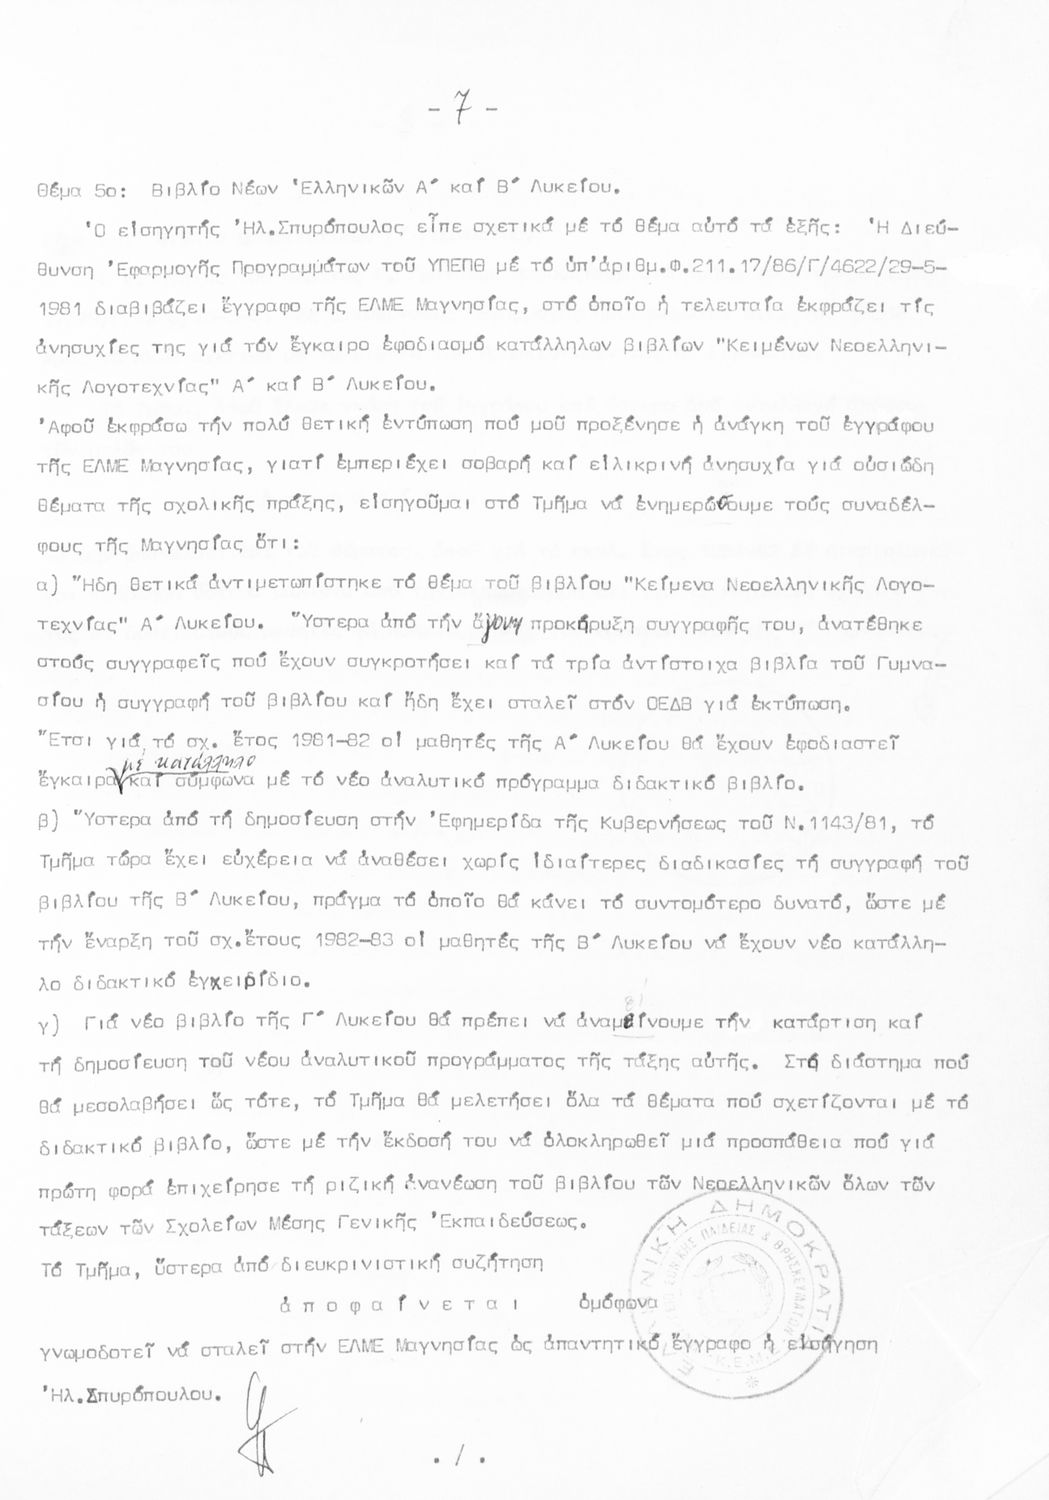 - 7 -
Θέμα 5ο: Βιβλίο Νέων Ἑλληνικῶν Α΄ καί Β΄ Λυκείου.
Ὁ εἰσηγητής Ἠλ.Σπυρόπουλος εἶπε σχετικά μέ τό θέμα αὐτό τά ἑξῆς: Ἡ Διεύ-
θυνση Ἐφαρμογῆς Προγραμμάτων τοῦ ΥΠΕΠΘ μέ τό ὑπ'ἀριθμ.Φ.211.17/86/Γ/4622/29-5-
1981 διαβιβάζει ἔγγραφο τῆς ΕΛΜΕ Μαγνησίας, στό ὁποῖο ἡ τελευταία ἐκφράζει τίς
ἀνησυχίες της γιά τόν ἔγκαιρο ἐφοδιασμό κατάλληλων βιβλίων "Κειμένων Νεοελληνι-
κῆς Λογοτεχνίας" Α΄ καί Β΄ Λυκείου.
Ἀφοῦ ἐκφράσω τήν πολύ θετική ἐντύπωση πού μοῦ προξένησε ἡ ἀνάγκη τοῦ ἐγγράφου
τῆς ΕΛΜΕ Μαγνησίας, γιατί ἐμπεριέχει σοβαρή καί εἰλικρινή ἀνησυχία γιά οὐσιώδη
θέματα τῆς σχολικῆς πράξης, εἰσηγοῦμαι στό Τμῆμα νά ἐνημερώσουμε τούς συναδέλ-
φους τῆς Μαγνησίας ὅτι:
α) Ἤδη θετικά ἀντιμετωπίστηκε τό θέμα τοῦ βιβλίου "Κείμενα Νεοελληνικῆς Λογο-
τεχνίας" Α΄ Λυκείου. Ὕστερα ἀπό τήν ἄγονη προκήρυξη συγγραφῆς του, ἀνατέθηκε
στούς συγγραφεῖς πού ἔχουν συγκροτήσει καί τά τρία ἀντίστοιχα βιβλία τοῦ Γυμνα-
σίου ἡ συγγραφή τοῦ βιβλίου καί ἤδη ἔχει σταλεῖ στόν ΟΕΔΒ γιά ἐκτύπωση.
Ἔτσι γιά τό σχ. ἔτος 1981-82 οἱ μαθητές τῆς Α΄ Λυκείου θά ἔχουν ἐφοδιαστεῖ
μέ κατάλληλο
ἔγκαιρα καί σύμφωνα μέ τό νέο ἀναλυτικό πρόγραμμα διδακτικό βιβλίο.
β) Ὕστερα ἀπό τή δημοσίευση στήν Ἐφημερίδα τῆς Κυβερνήσεως τοῦ Ν.1143/81, τό
Τμῆμα τώρα ἔχει εὐχέρεια νά ἀναθέσει χωρίς ἰδιαίτερες διαδικασίες τή συγγραφή τοῦ
βιβλίου τῆς Β΄ Λυκείου, πράγμα τό ὁποῖο θά κάνει τό συντομότερο δυνατό, ὥστε μέ
τήν ἔναρξη τοῦ σχ.ἔτους 1982-83 οἱ μαθητές τῆς Β΄ Λυκείου νά ἔχουν νέο κατάλλη-
λο διδακτικό ἐγχειρίδιο.
γ) Γιά νέο βιβλίο τῆς Γ΄ Λυκείου θά πρέπει νά ἀναμείνουμε τήν κατάρτιση καί
τή δημοσίευση τοῦ νέου ἀναλυτικοῦ προγράμματος τῆς τάξης αὐτῆς. Στό διάστημα πού
θά μεσολαβήσει ὥς τότε, τό Τμῆμα θά μελετήσει ὅλα τά θέματα πού σχετίζονται μέ τό
διδακτικό βιβλίο, ὥστε μέ τήν ἔκδοσή του νά ὁλοκληρωθεῖ μιά προσπάθεια πού γιά
πρώτη φορά ἐπιχείρησε τή ριζική ἀνανέωση τοῦ βιβλίου τῶν Νεοελληνικῶν ὅλων τῶν
τάξεων τῶν Σχολείων Μέσης Γενικῆς Ἐκπαιδεύσεως.
Τό Τμῆμα, ὕστερα ἀπό διευκρινιστική συζήτηση
ἀ π ο φ α ί ν ε τ α ι ὁμόφωνα
γνωμοδοτεῖ νά σταλεῖ στήν ΕΛΜΕ Μαγνησίας ὡς ἀπαντητικό ἔγγραφο ἡ εἰσήγηση
Ἠλ.Σπυρόπουλου.
ΕΛΛΗΝΙΚΗ ΔΗΜΟΚΡΑΤΙΑ
ΠΑΙΔΕΙΑΣ & ΘΡΗΣΚΕΥΜΑΤΩΝ
Κ.Ε.Μ.
. / .